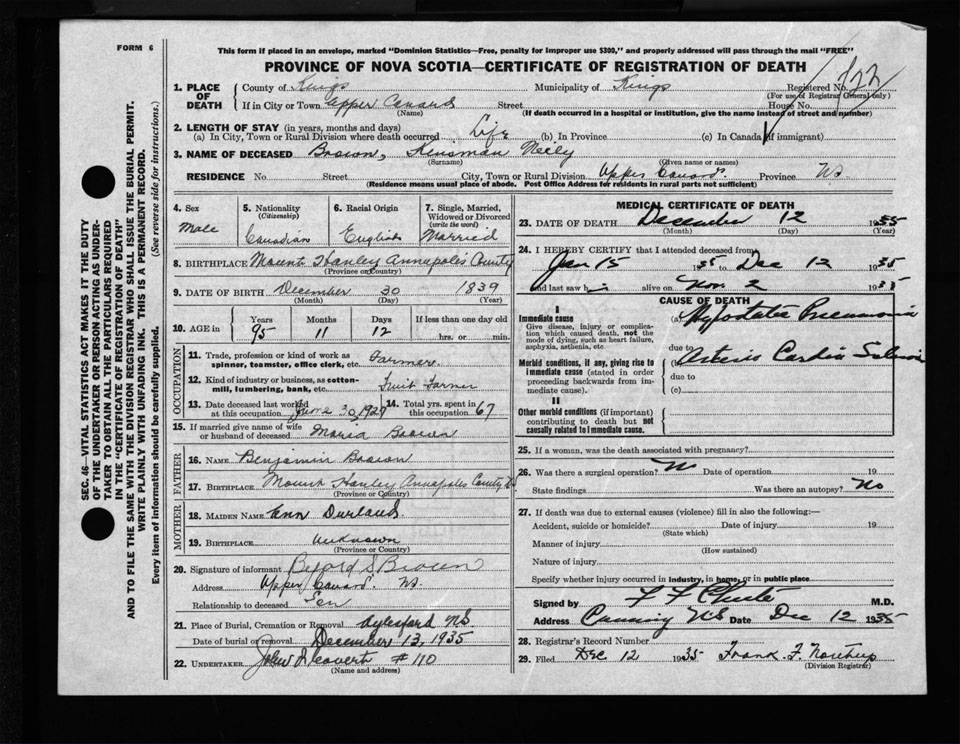 FORM 6
This form if placed in an envelope, marked "Dominion Statistics—Free, penalty for improper use $300," and properly addressed will pass through the mail "FREE"
PROVINCE OF NOVA SCOTIA—CERTIFICATE OF REGISTRATION OF DEATH
SEC. 46—VITAL STATISTICS ACT MAKES IT THE DUTY
OF THE UNDERTAKER OR PERSON ACTING AS UNDER-
TAKER TO OBTAIN ALL THE PARTICULARS REQUIRED
IN THE "CERTIFICATE OF REGISTRATION OF DEATH"
AND TO FILE THE SAME WITH THE DIVISION REGISTRAR WHO SHALL ISSUE THE BURIAL PERMIT.
WRITE PLAINLY WITH UNFADING INK. THIS IS A PERMANENT RECORD.
Every item of information should be carefully supplied. (See reverse side for instructions.)
1. PLACE OF DEATH County of Kings Municipality of Kings Registered No.
(For use of Registrar General only)
If in City or Town Upper Canard Street House No.
(Name) (If death occurred in a hospital or institution, give the name instead of street and number)
2. LENGTH OF STAY (in years, months and days)
(a) In City, Town or Rural Division where death occurred Life (b) In Province (c) In Canada (if immigrant)
3. NAME OF DECEASED Brown, Kinsman Neily
(Surname) (Given name or names)
RESIDENCE No. Street City, Town or Rural Division Upper Canard. Province NS
(Residence means usual place of abode. Post Office Address for residents in rural parts not sufficient)
4. Sex Male
5. Nationality (Citizenship) Canadian
6. Racial Origin English
7. Single, Married, Widowed or Divorced (write the word) Married
8. BIRTHPLACE Mount Hanley Annapolis County
(Province or Country)
9. DATE OF BIRTH December 30 1839
(Month) (Day) (Year)
10. AGE in Years 95 Months 11 Days 12 If less than one day old hrs. or min.
OCCUPATION
11. Trade, profession or kind of work as spinner, teamster, office clerk, etc. Farmer
12. Kind of industry or business, as cotton-mill, lumbering, bank, etc. Fruit Farmer
13. Date deceased last worked at this occupation June 30, 1927 14. Total yrs. spent in this occupation 67
15. If married give name of wife or husband of deceased Maria Brown
FATHER
16. NAME Benjamin Brown
17. BIRTHPLACE Mount Hanley Annapolis County NS
(Province or Country)
MOTHER
18. MAIDEN NAME Ann Durland.
19. BIRTHPLACE Unknown
(Province or Country)
20. Signature of informant S Brown
Address Upper Canard. NS.
Relationship to deceased Son
21. Place of Burial, Cremation or Removal Aylesford NS
Date of burial or removal December 13, 1935
22. UNDERTAKER John # 110
(Name and address)
MEDICAL CERTIFICATE OF DEATH
23. DATE OF DEATH December 12 1935
(Month) (Day) (Year)
24. I HEREBY CERTIFY that I attended deceased from
Jan 15 1935 to Dec 12 1935
and last saw him alive on Nov. 2 1935
CAUSE OF DEATH
I
Immediate cause
Give disease, injury or complica-
tion which caused death, not the
mode of dying, such as heart failure,
asphyxia, asthenia, etc.
(a) Hypostatic Pneumonia
due to
Morbid conditions, if any, giving rise to
immediate cause (stated in order
proceeding backwards from im-
mediate cause).
(b) Arterio Cardio Sclerosis
due to
(c)
II
Other morbid conditions (if important)
contributing to death but not
causally related to immediate cause.
25. If a woman, was the death associated with pregnancy?
26. Was there a surgical operation? No Date of operation 19
State findings Was there an autopsy? No
27. If death was due to external causes (violence) fill in also the following:—
Accident, suicide or homicide? Date of injury 19
(State which)
Manner of injury
(How sustained)
Nature of injury
Specify whether injury occurred in industry, in home, or in public place
Signed by M.D.
Address Canning NS Date Dec 12 1935
28. Registrar's Record Number
29. Filed Dec 12 1935 Frank F. Northup
(Division Registrar)